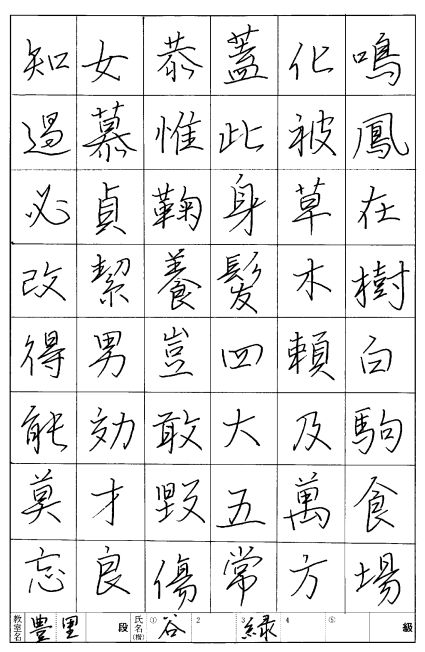 鳴鳳在樹白駒食場
化被草木頼及萬方
蓋此身髮四大五常
恭惟鞠養豈敢毀傷
女慕貞絜男効才良
知過必改得能莫忘
教室名 豊里 段 氏名(楷) ① 谷 2 3 緑 4 ⑤ 級